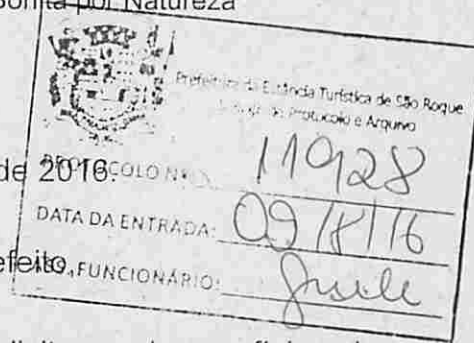 Bonita por Natureza
Prefeitura da Estância Turística de São Roque
Protocolo e Arquivo
de 2016.
PROTOCOLO Nº 11928
DATA DA ENTRADA: 09/8/16
efeito,
ASS. FUNCIONÁRIO: Gisele